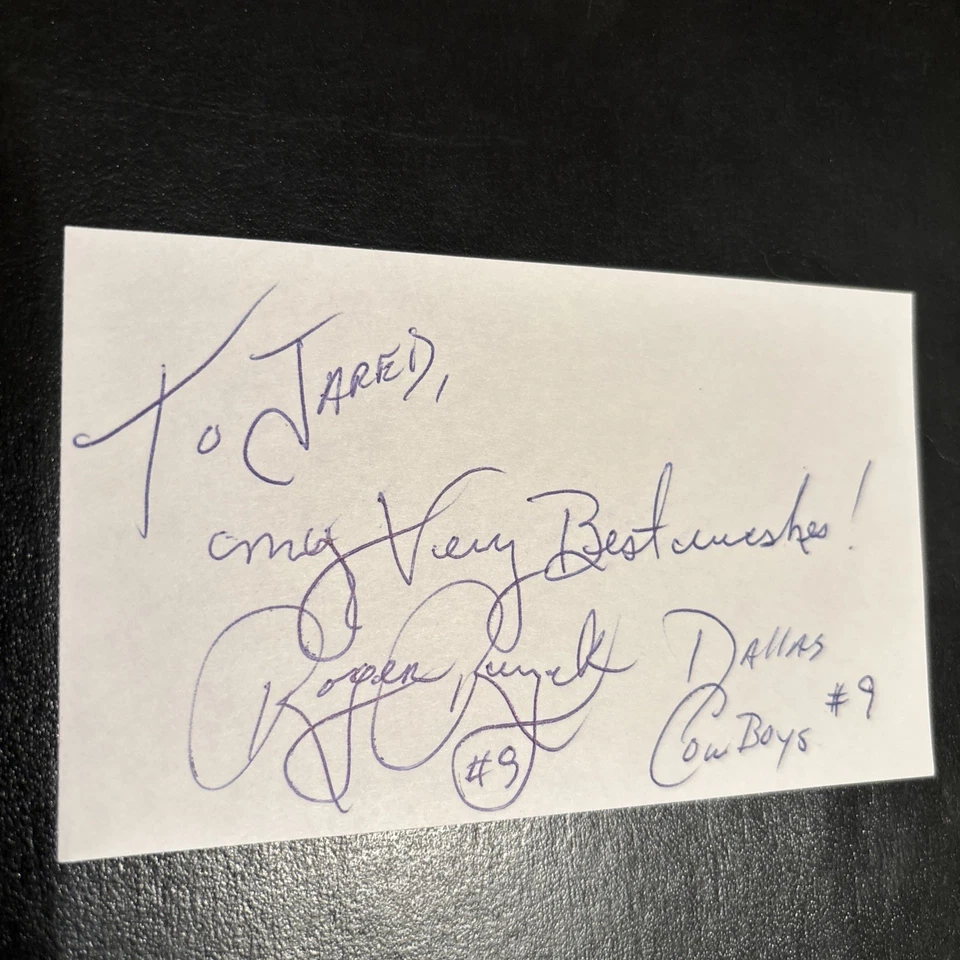 To JARED,
my Very Best wishes!
Roger Ruzek
#9
DALLAS
COWBOYS #9